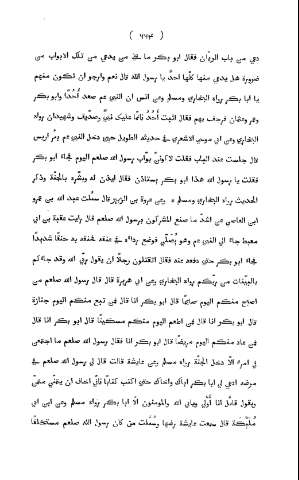 ( ٤٦٤ )
دعي من باب الريان فقال ابو بكر ما على من يدعي من تلك الابواب من
ضرورة هل يدعي منها كلها احد يا رسول الله قال نعم وارجو ان تكون منهم
يا ابا بكر رواه البخاري ومسلم وعن انس ان النبي صعم صعد أُحُدًا وابو بكر
وعمر وعثمان فرجف بهم فقال اثبت أُحد فانما عليك نبي وصديق وشهيدان رواه
البخاري وعن ابي موسى الاشعري في حديثه الطويل حين دخل النبي عم بئر اريس
قال جلست عند الباب فقلت لاكونن بواب رسول الله صلعم اليوم فجاء ابو بكر
فقلت يا رسول الله هذا ابو بكر يستأذن فقال ايذن له وبشره بالجنة وذكر
الحديث رواه البخاري ومسلم وعن عروة بن الزبير قال سألت عبد الله بن عمرو
ابن العاصي عن اشد ما صنع المشركون برسول الله صلعم قال رايت عقبة بن ابي
معيط جاء الى النبي عم وهو يُصلي فوضع رداءه في عنقه فخنقه به خنقًا شديدًا
فجاء ابو بكر حتى دفعه عنه فقال اتقتلون رجلًا ان يقول ربي الله وقد جاءكم
بالبينات من ربكم رواه البخاري وعن ابي هريرة قال قال رسول الله صلعم من
اصبح منكم اليوم صايمًا قال ابو بكر انا قال فمن تبع منكم اليوم جنازة
قال ابو بكر انا قال فمن اطعم اليوم منكم مسكينًا قال ابو بكر انا قال
فمن عاد منكم اليوم مريضًا قال ابو بكر انا فقال رسول الله صلعم ما اجتمعن
في امرء الا دخل الجنة رواه مسلم وعن عايشة قالت قال لي رسول الله صلعم في
مرضه ادعي لي ابا بكر اباك واخاك حتى اكتب كتابًا فاني اخاف ان يتمنى متمني
ويقول قائل انا أَوْلى ويابى الله والمومنون الا ابا بكر رواه مسلم وعن ابن ابي
مُلَيْكَة قال سمعت عايشة رضها وسُئلت من كان رسول الله صلعم مستخلفًا